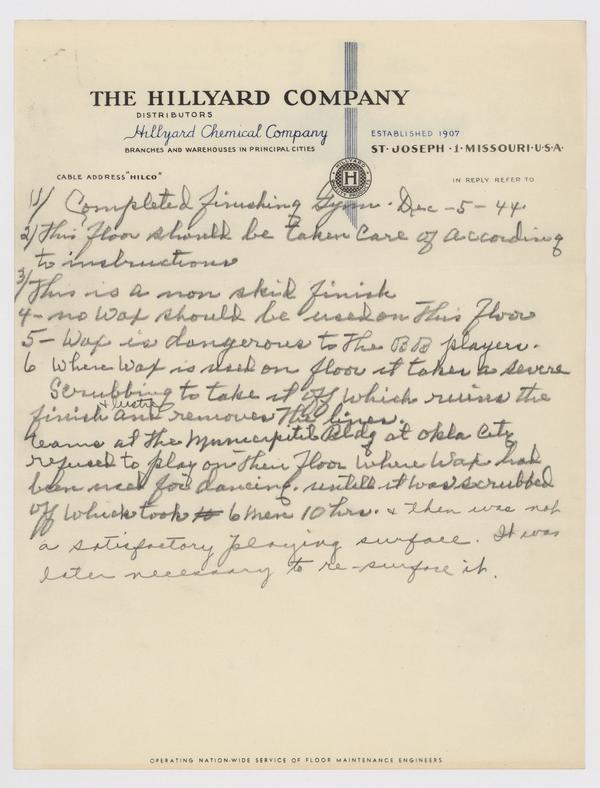 THE HILLYARD COMPANY
DISTRIBUTORS
Hillyard Chemical Company
BRANCHES AND WAREHOUSES IN PRINCIPAL CITIES
ESTABLISHED 1907
ST. JOSEPH · 1 · MISSOURI · U·S·A·
HILLYARD
H
CABLE ADDRESS "HILCO"
IN REPLY REFER TO
1) Completed finishing Gym. Dec -5-44.
2) This floor should be taken care of according
to instructions
3) This is a non skid finish
4- no Wax should be used on This Floor
5- Wax is dangerous to The BB players.
6 Where Wax is used on floor it takes a severe
Scrubbing to take it off which ruins the
finish & lustre and removes The lines.
teams at the Municipal Bldg at Okla City
refused to play on Their Floor Where Wax had
been used for dancing. until it was scrubbed
off Which took 6 men 10 hrs. & then was not
a satisfactory playing surface. It was
later necessary to re-surface it.
OPERATING NATION-WIDE SERVICE OF FLOOR MAINTENANCE ENGINEERS